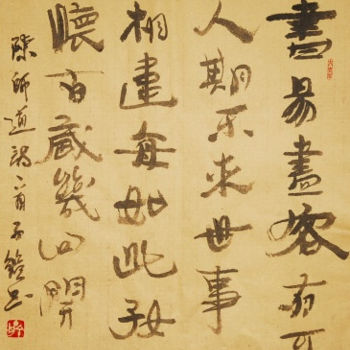 書易盡客有可
人期不來世事
相違每如此好
懷百歲幾回開
陳師道詩一首子書